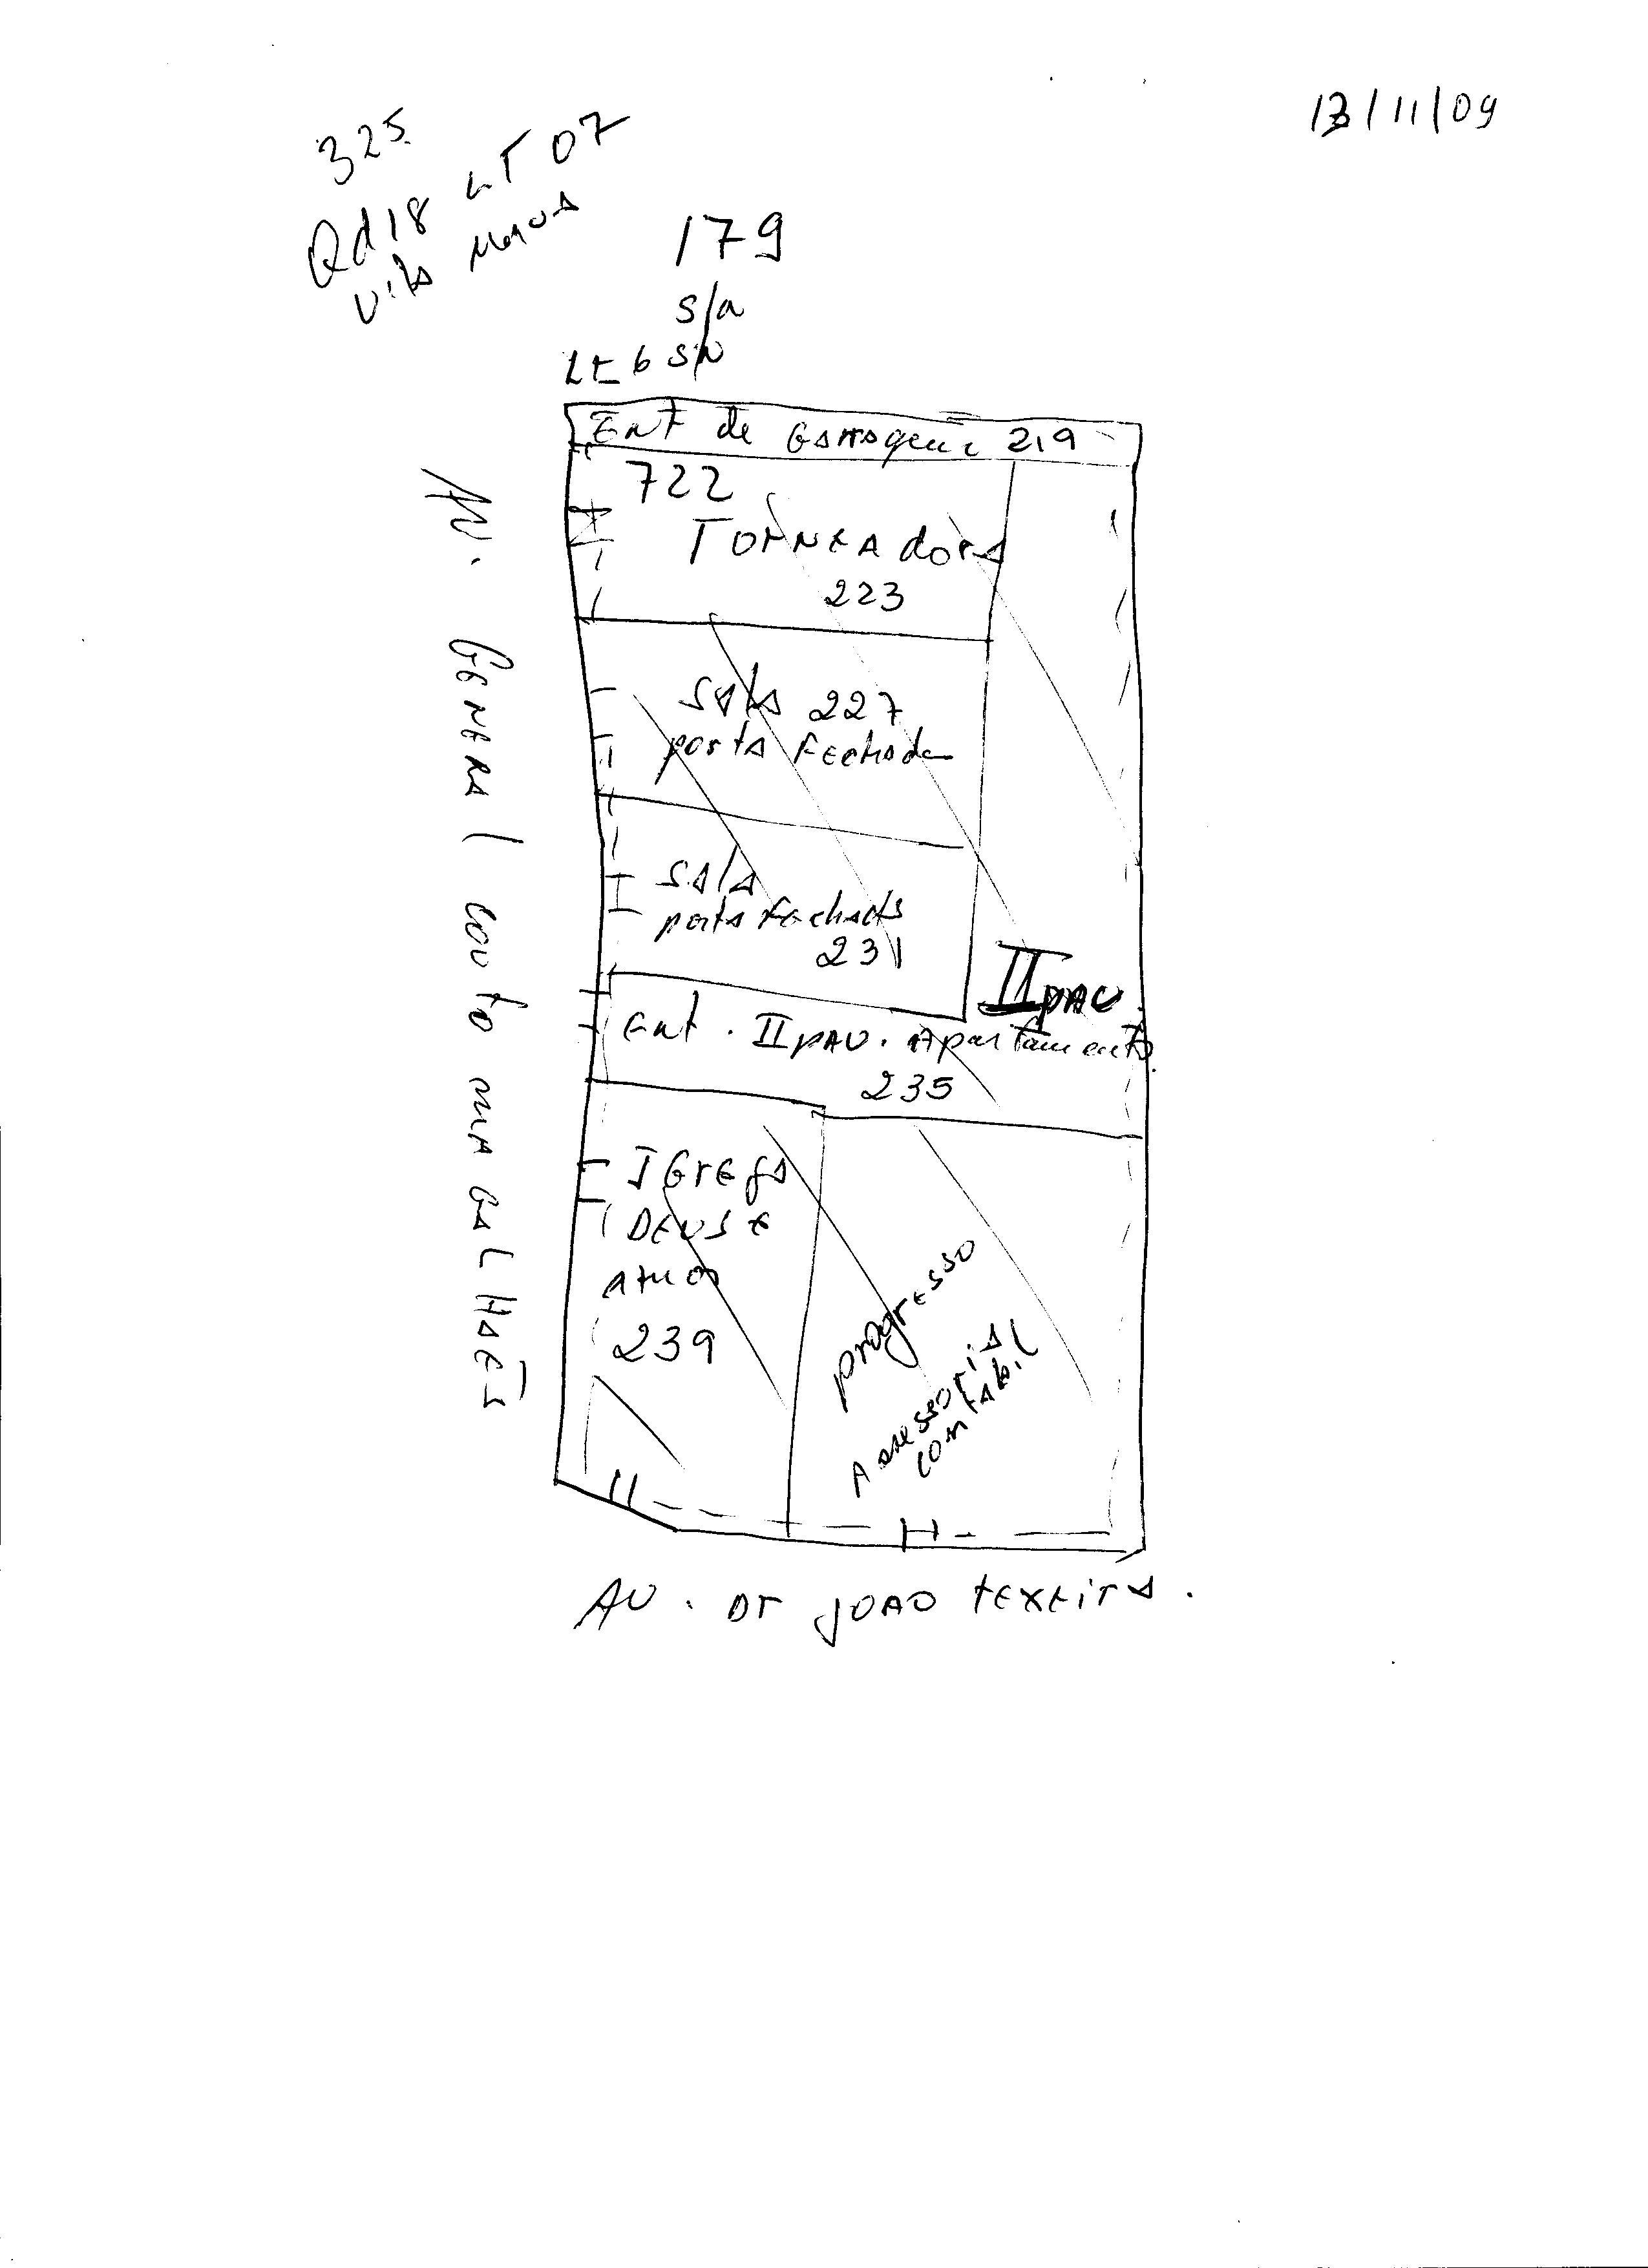 13/11/09
325
Qd 18 LT 07
Vila
179
s/a
Lt 6 S/N
Ent de Garagem 219
722
TORNEAdORA
223
SAlA 227
portA FEchada
SAlA
portA Fechada
231
II pAV.
Ent. II pAV. Apartamento
235
IGrEjA
DEUS É
AMOR
239
progresso
Assessoria
contabil
AV. GENERAl couto mAGAlHAÊS
AV. Dr JOAO tEXEirA.